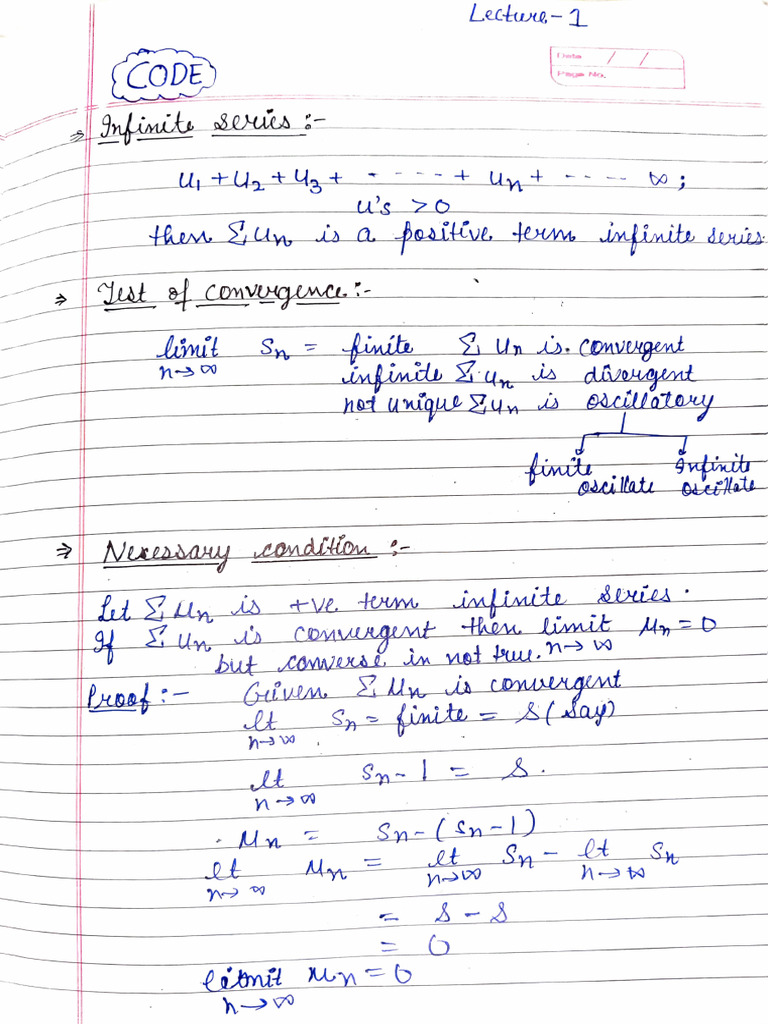 Lecture-1
CODE
Date / /
Page No.
⇒ Infinite series :-
u₁ + u₂ + u₃ + - - - - - + uₙ + - - - - ∞ ;
u's > 0
then Σ uₙ is a positive term infinite series.
⇒ Test of convergence :-
limit Sₙ = finite Σ uₙ is convergent
n→∞ infinite Σ uₙ is divergent
not unique Σ uₙ is oscillatory
finite Infinite
oscillate oscillate
⇒ Necessary condition :-
Let Σ uₙ is +ve term infinite series .
If Σ uₙ is convergent then limit uₙ = 0
but converse in not true. n→∞
Proof :- Given Σ uₙ is convergent
lt Sₙ = finite = S (say)
n→∞
lt Sₙ - 1 = S .
n→∞
uₙ = Sₙ - (Sₙ - 1)
lt uₙ = lt Sₙ - lt Sₙ
n→∞ n→∞ n→∞
= S - S
= 0
limit uₙ = 0
n→∞